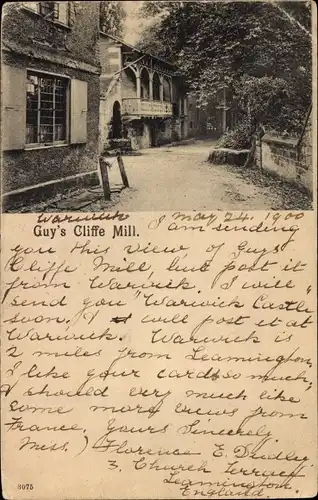 Warwick May 24. 1900
Guy's Cliffe Mill. I am sending
you this view of Guys
Cliffe Mill, but post it
from Warwick. I will
"send you" Warwick Castle
soon. I will post it at
Warwick. Warwick is
2 miles from Leamington.
I like your cards so much,
I should very much like
some more views from
France, Yours Sincerely
Miss.) Florence E. Dudley
3, Church Terrace
Leamington.
England
3075